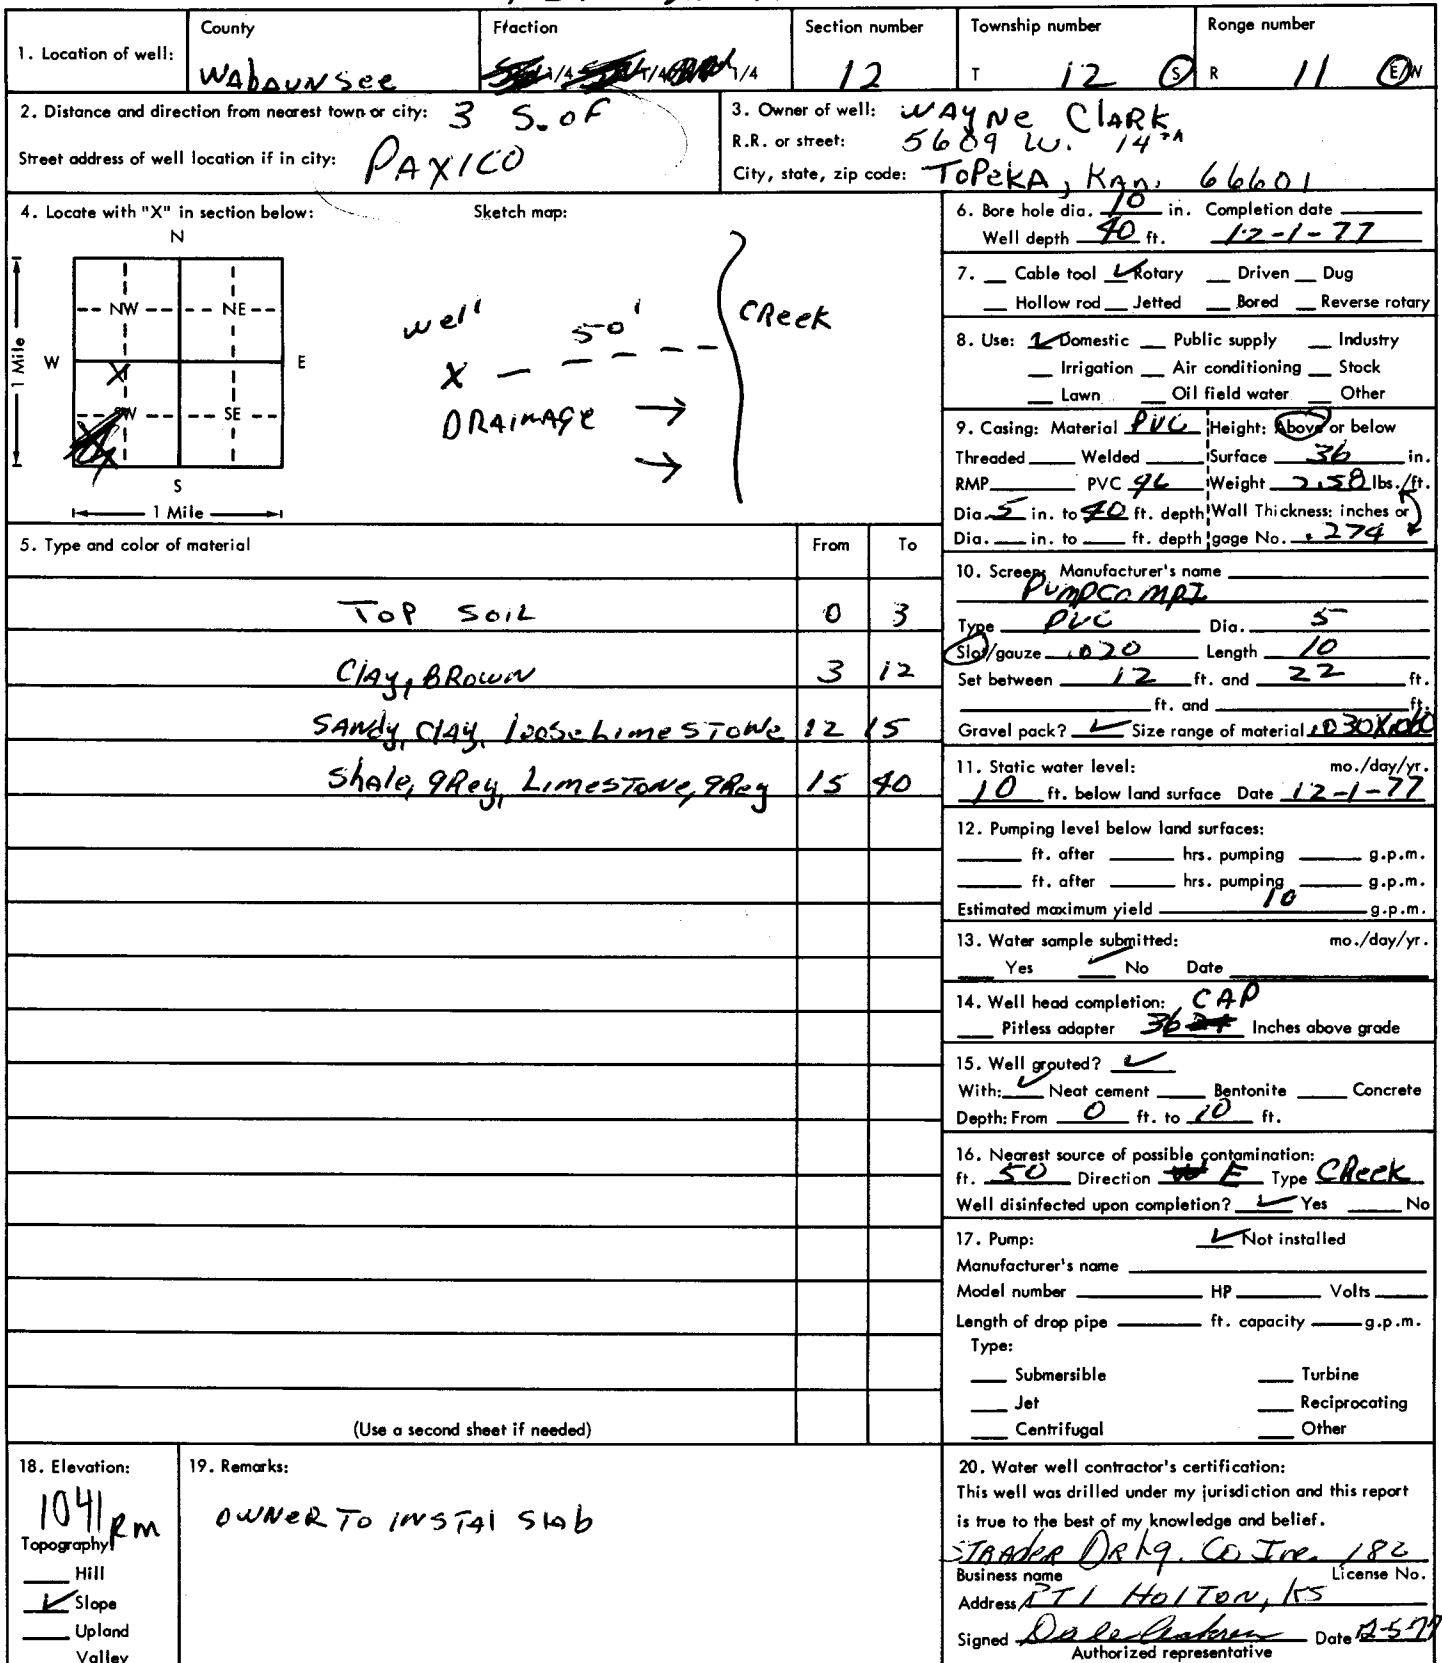 County
Fraction
Section number
Township number
Ronge number
1. Location of well:
WABAUNSee
1/4 1/4 1/4
12
T 12 S
R 11 E W
2. Distance and direction from nearest town or city: 3 S. OF
Street address of well location if in city: PAXICO
3. Owner of well: WAYNe ClARK
R.R. or street: 5609 W. 14TH
City, state, zip code: TOPeKA, KAn. 66601
4. Locate with "X" in section below:
Sketch map:
N
NW NE
W E
X
SW SE
S
1 Mile
1 Mile
well
X
50'
CReek
DRAiNAGe
5. Type and color of material From To
TOP SOIL 0 3
ClAy, BROWN 3 12
SANdy, ClAy, looseLimeSTONe 12 15
ShAle, gRey, LimesTONe, gRey 15 40
(Use a second sheet if needed)
6. Bore hole dia. 10 in. Completion date
Well depth 40 ft. 12-1-77
7. Cable tool Rotary Driven Dug
Hollow rod Jetted Bored Reverse rotary
8. Use: Domestic Public supply Industry
Irrigation Air conditioning Stock
Lawn Oil field water Other
9. Casing: Material PVC Height: Above or below
Threaded Welded Surface 36 in.
RMP PVC Weight 2.58 lbs./ft.
Dia. 5 in. to 40 ft. depth Wall Thickness: inches or
Dia. in. to ft. depth gage No. .274
10. Screen: Manufacturer's name
Type PVC Dia. 5
Slot/gauze .020 Length 10
Set between 12 ft. and 22 ft.
ft. and ft.
Gravel pack? Size range of material .030X.060
11. Static water level: mo./day/yr.
10 ft. below land surface Date 12-1-77
12. Pumping level below land surfaces:
ft. after hrs. pumping g.p.m.
ft. after hrs. pumping g.p.m.
Estimated maximum yield 10 g.p.m.
13. Water sample submitted: mo./day/yr.
Yes No Date
14. Well head completion: CAP
Pitless adapter 36 Inches above grade
15. Well grouted?
With: Neat cement Bentonite Concrete
Depth: From 0 ft. to 10 ft.
16. Nearest source of possible contamination:
ft. 50 Direction E Type CReek
Well disinfected upon completion? Yes No
17. Pump: Not installed
Manufacturer's name
Model number HP Volts
Length of drop pipe ft. capacity g.p.m.
Type:
Submersible Turbine
Jet Reciprocating
Centrifugal Other
18. Elevation:
1041 Rm
Topography
Hill
Slope
Upland
Valley
19. Remarks:
OWNeR TO INSTAl SlAb
20. Water well contractor's certification:
This well was drilled under my jurisdiction and this report
is true to the best of my knowledge and belief.
STRAdeR DRlg. Co Inc. 182
Business name License No.
Address RT1 HOlTON, KS
Signed Dale Date 12-5-77
Authorized representative